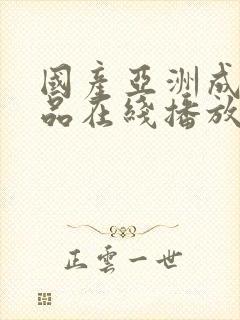 國產亞洲成
品在綫播放
正雲一世